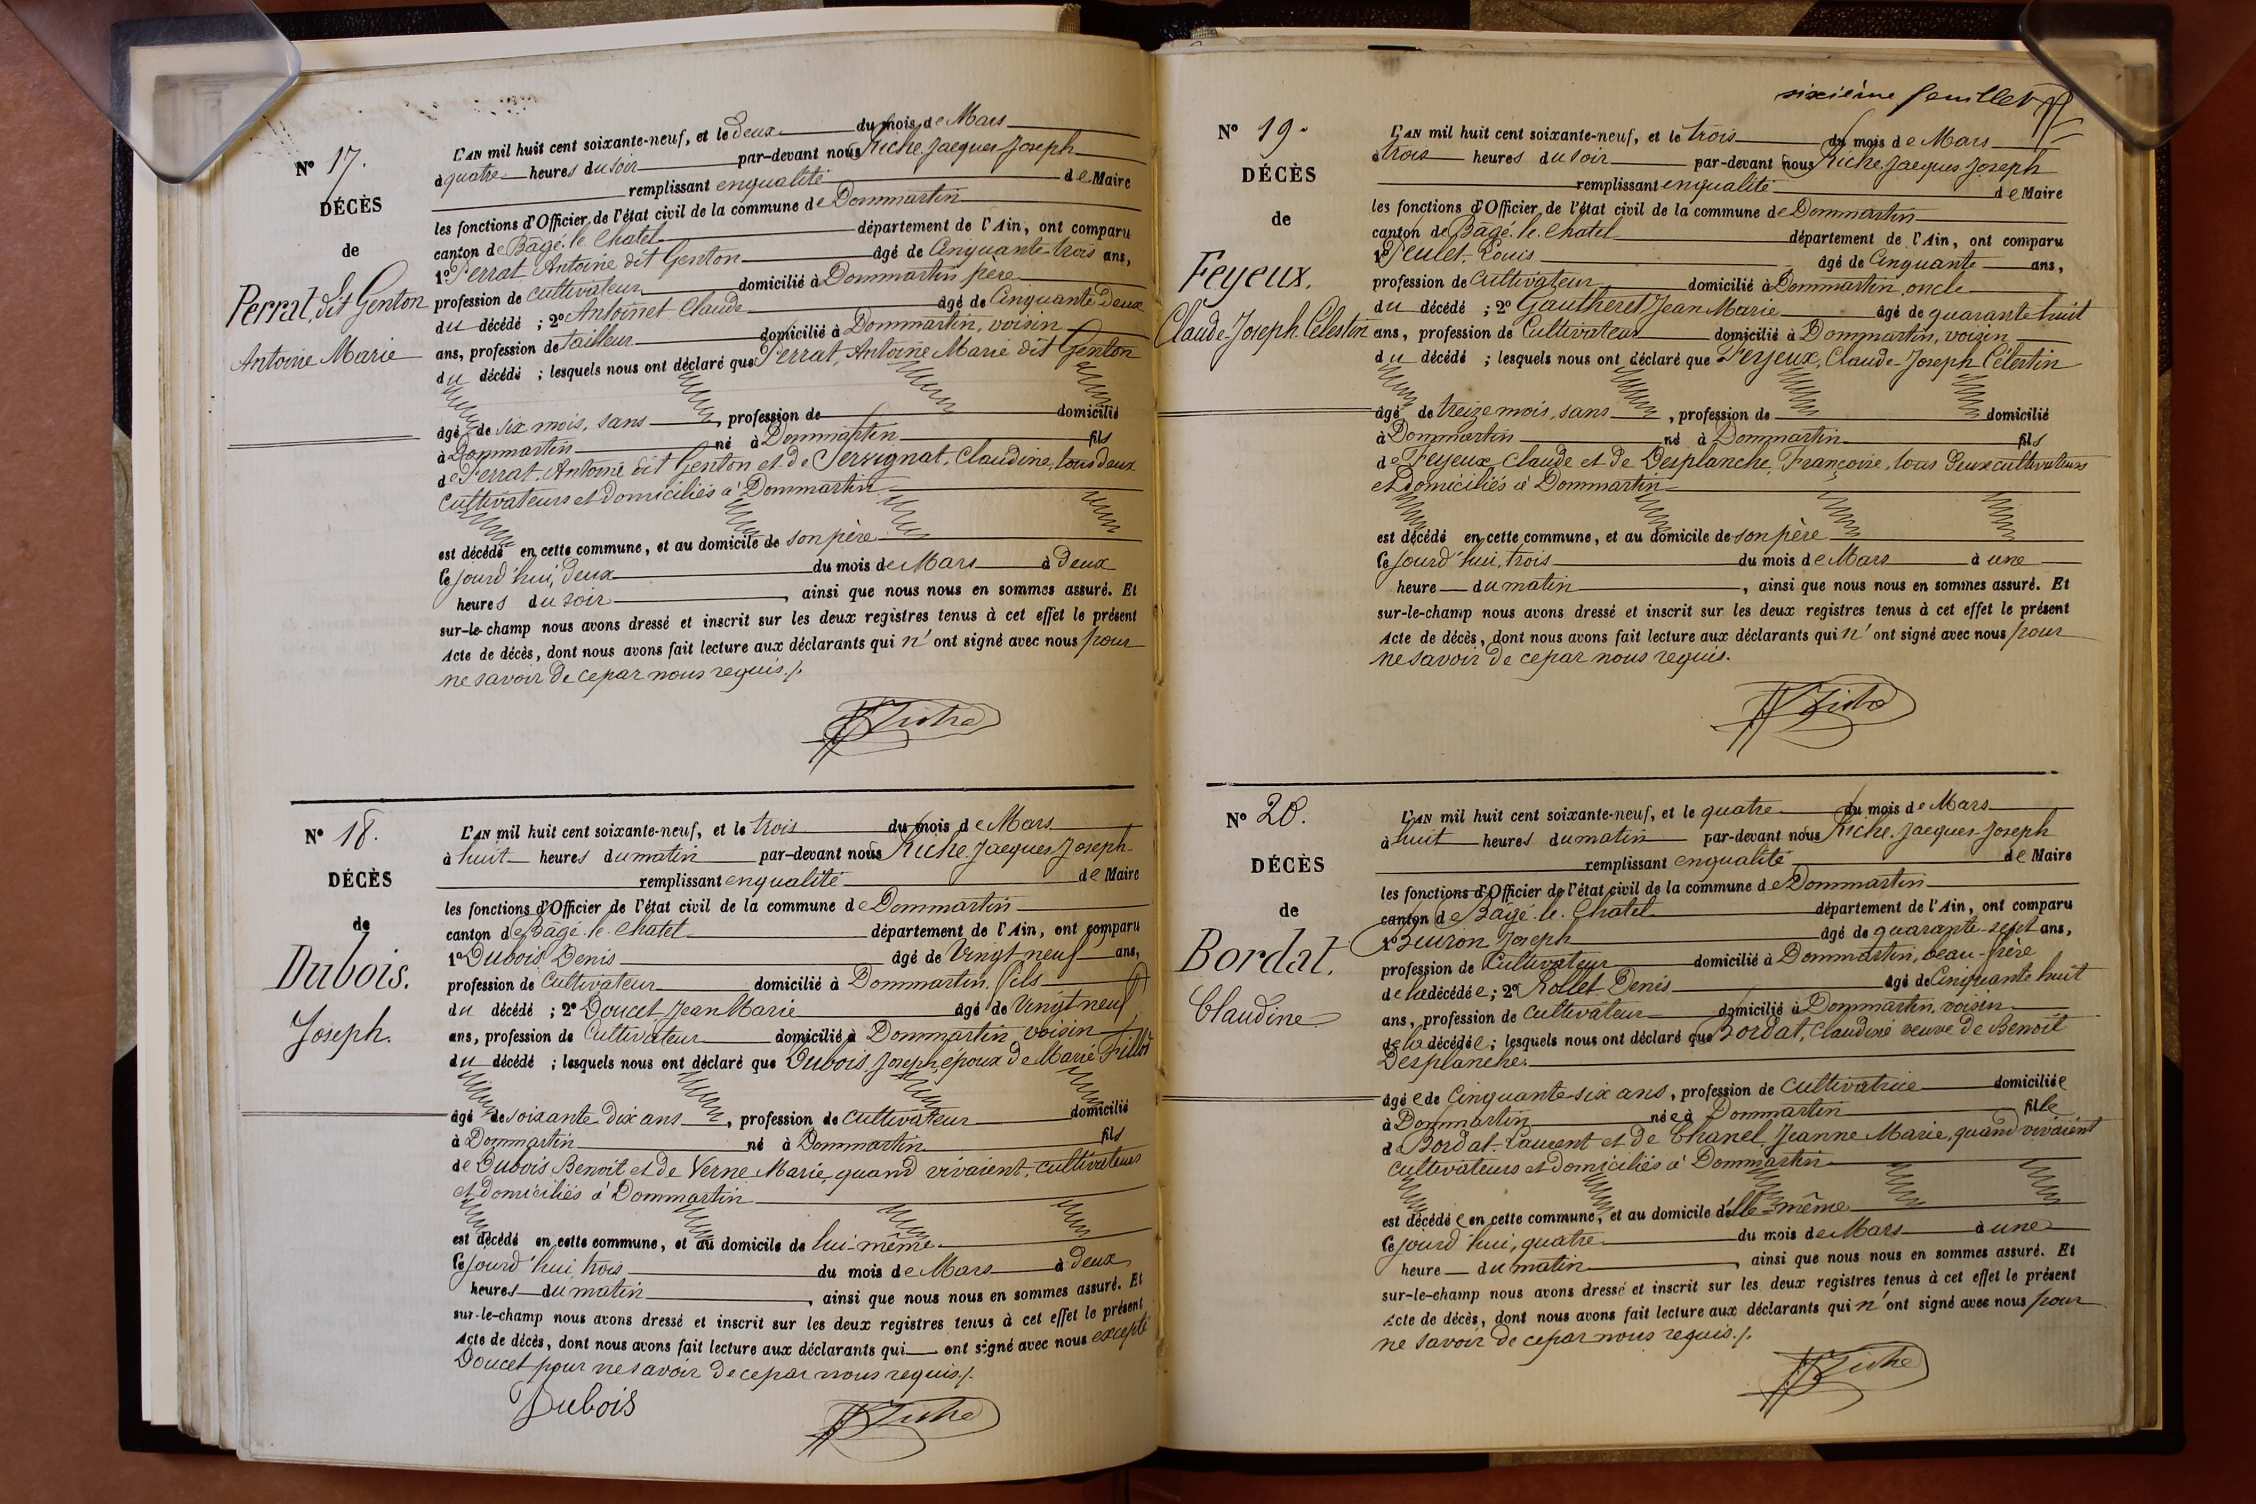 N° 17.
DÉCÈS
de
Perrat, dit Genton
Antoine Marie
L'AN mil huit cent soixante-neuf, et le deux du mois de Mars
à quatre heures du soir par-devant nous Riche, Jacques Joseph
remplissant en qualité de Maire
les fonctions d'Officier de l'état civil de la commune de Dommartin
canton de Bâgé-le-Chatel département de l'Ain, ont comparu
1° Perrat Antoine dit Genton âgé de Cinquante-trois ans,
profession de cultivateur domicilié à Dommartin père
du décédé ; 2° Antoinet Claude âgé de Cinquante deux
ans, profession de tailleur domicilié à Dommartin, voisin
du décédé ; lesquels nous ont déclaré que Perrat, Antoine Marie dit Genton
âgé de six mois, sans, profession de domicilié
à Dommartin né à Dommartin fils
de Perrat, Antoine dit Genton et de Persignat, Claudine, tous deux
cultivateurs et domiciliés à Dommartin
est décédé en cette commune, et au domicile de son père
Ce jourd'hui, deux du mois de Mars à deux
heures du soir, ainsi que nous nous en sommes assuré. Et
sur-le-champ nous avons dressé et inscrit sur les deux registres tenus à cet effet le présent
Acte de décès, dont nous avons fait lecture aux déclarants qui n'ont signé avec nous pour
ne savoir de ce par nous requis ./.
Riche
N° 18.
DÉCÈS
de
Dubois.
Joseph.
L'AN mil huit cent soixante-neuf, et le trois du mois de Mars
à huit heures du matin par-devant nous Riche, Jacques Joseph
remplissant en qualité de Maire
les fonctions d'Officier de l'état civil de la commune de Dommartin
canton de Bâgé-le-Chatel département de l'Ain, ont comparu
1° Dubois Denis âgé de Vingt neuf ans,
profession de Cultivateur domicilié à Dommartin, fils
du décédé ; 2° Doucet, Jean Marie âgé de Vingt neuf
ans, profession de Cultivateur domicilié à Dommartin voisin
du décédé ; lesquels nous ont déclaré que Dubois, Joseph, époux de Marie
âgé de soixante dix ans, profession de cultivateur domicilié
à Dommartin né à Dommartin fils
de Dubois Benoit et de Verne Marie, quand vivaient, cultivateurs
et domiciliés à Dommartin
est décédé en cette commune, et au domicile de lui-même
Ce jourd'hui, trois du mois de Mars à deux
heures du matin, ainsi que nous nous en sommes assuré. Et
sur-le-champ nous avons dressé et inscrit sur les deux registres tenus à cet effet le présent
Acte de décès, dont nous avons fait lecture aux déclarants qui ont signé avec nous excepté
Doucet pour ne savoir de ce par nous requis ./.
Dubois
Riche
sixième feuillet
N° 19.
DÉCÈS
de
Feyeux.
Claude-Joseph-Célestin
L'AN mil huit cent soixante-neuf, et le trois du mois de Mars
à trois heures du soir par-devant nous Riche, Jacques Joseph
remplissant en qualité de Maire
les fonctions d'Officier de l'état civil de la commune de Dommartin
canton de Bâgé-le-Chatel département de l'Ain, ont comparu
1° Peulet, Louis âgé de Cinquante ans,
profession de Cultivateur domicilié à Dommartin, oncle
du décédé ; 2° Gautheret, Jean Marie âgé de quarante huit
ans, profession de Cultivateur domicilié à Dommartin, voisin
du décédé ; lesquels nous ont déclaré que Feyeux, Claude-Joseph Célestin
âgé de treize mois, sans, profession de domicilié
à Dommartin né à Dommartin fils
de Feyeux, Claude et de Desplanche, Françoise, tous deux cultivateurs
et domiciliés à Dommartin
est décédé en cette commune, et au domicile de son père
Ce jourd'hui, trois du mois de Mars à une
heure du matin, ainsi que nous nous en sommes assuré. Et
sur-le-champ nous avons dressé et inscrit sur les deux registres tenus à cet effet le présent
Acte de décès, dont nous avons fait lecture aux déclarants qui n'ont signé avec nous pour
ne savoir de ce par nous requis.
Riche
N° 20.
DÉCÈS
de
Bordat.
Claudine
L'AN mil huit cent soixante-neuf, et le quatre du mois de Mars
à huit heures du matin par-devant nous Riche, Jacques Joseph
remplissant en qualité de Maire
les fonctions d'Officier de l'état civil de la commune de Dommartin
canton de Bâgé-le-Chatel département de l'Ain, ont comparu
1° Buiron Joseph âgé de quarante-sept ans,
profession de Cultivateur domicilié à Dommartin, beau-frère
de la décédée ; 2° Rollet Denis âgé de Cinquante huit
ans, profession de Cultivateur domicilié à Dommartin, voisin
de la décédée ; lesquels nous ont déclaré que Bordat, Claudine veuve de Benoit
Desplanche.
âgée de Cinquante-six ans, profession de cultivatrice domiciliée
à Dommartin née à Dommartin fille
de Bordat Laurent et de Chanel, Jeanne Marie, quand vivaient
cultivateurs et domiciliés à Dommartin
est décédée en cette commune, et au domicile d'elle-même
Ce jourd'hui, quatre du mois de Mars à une
heure du matin, ainsi que nous nous en sommes assuré. Et
sur-le-champ nous avons dressé et inscrit sur les deux registres tenus à cet effet le présent
Acte de décès, dont nous avons fait lecture aux déclarants qui n'ont signé avec nous pour
ne savoir de ce par nous requis ./.
Riche